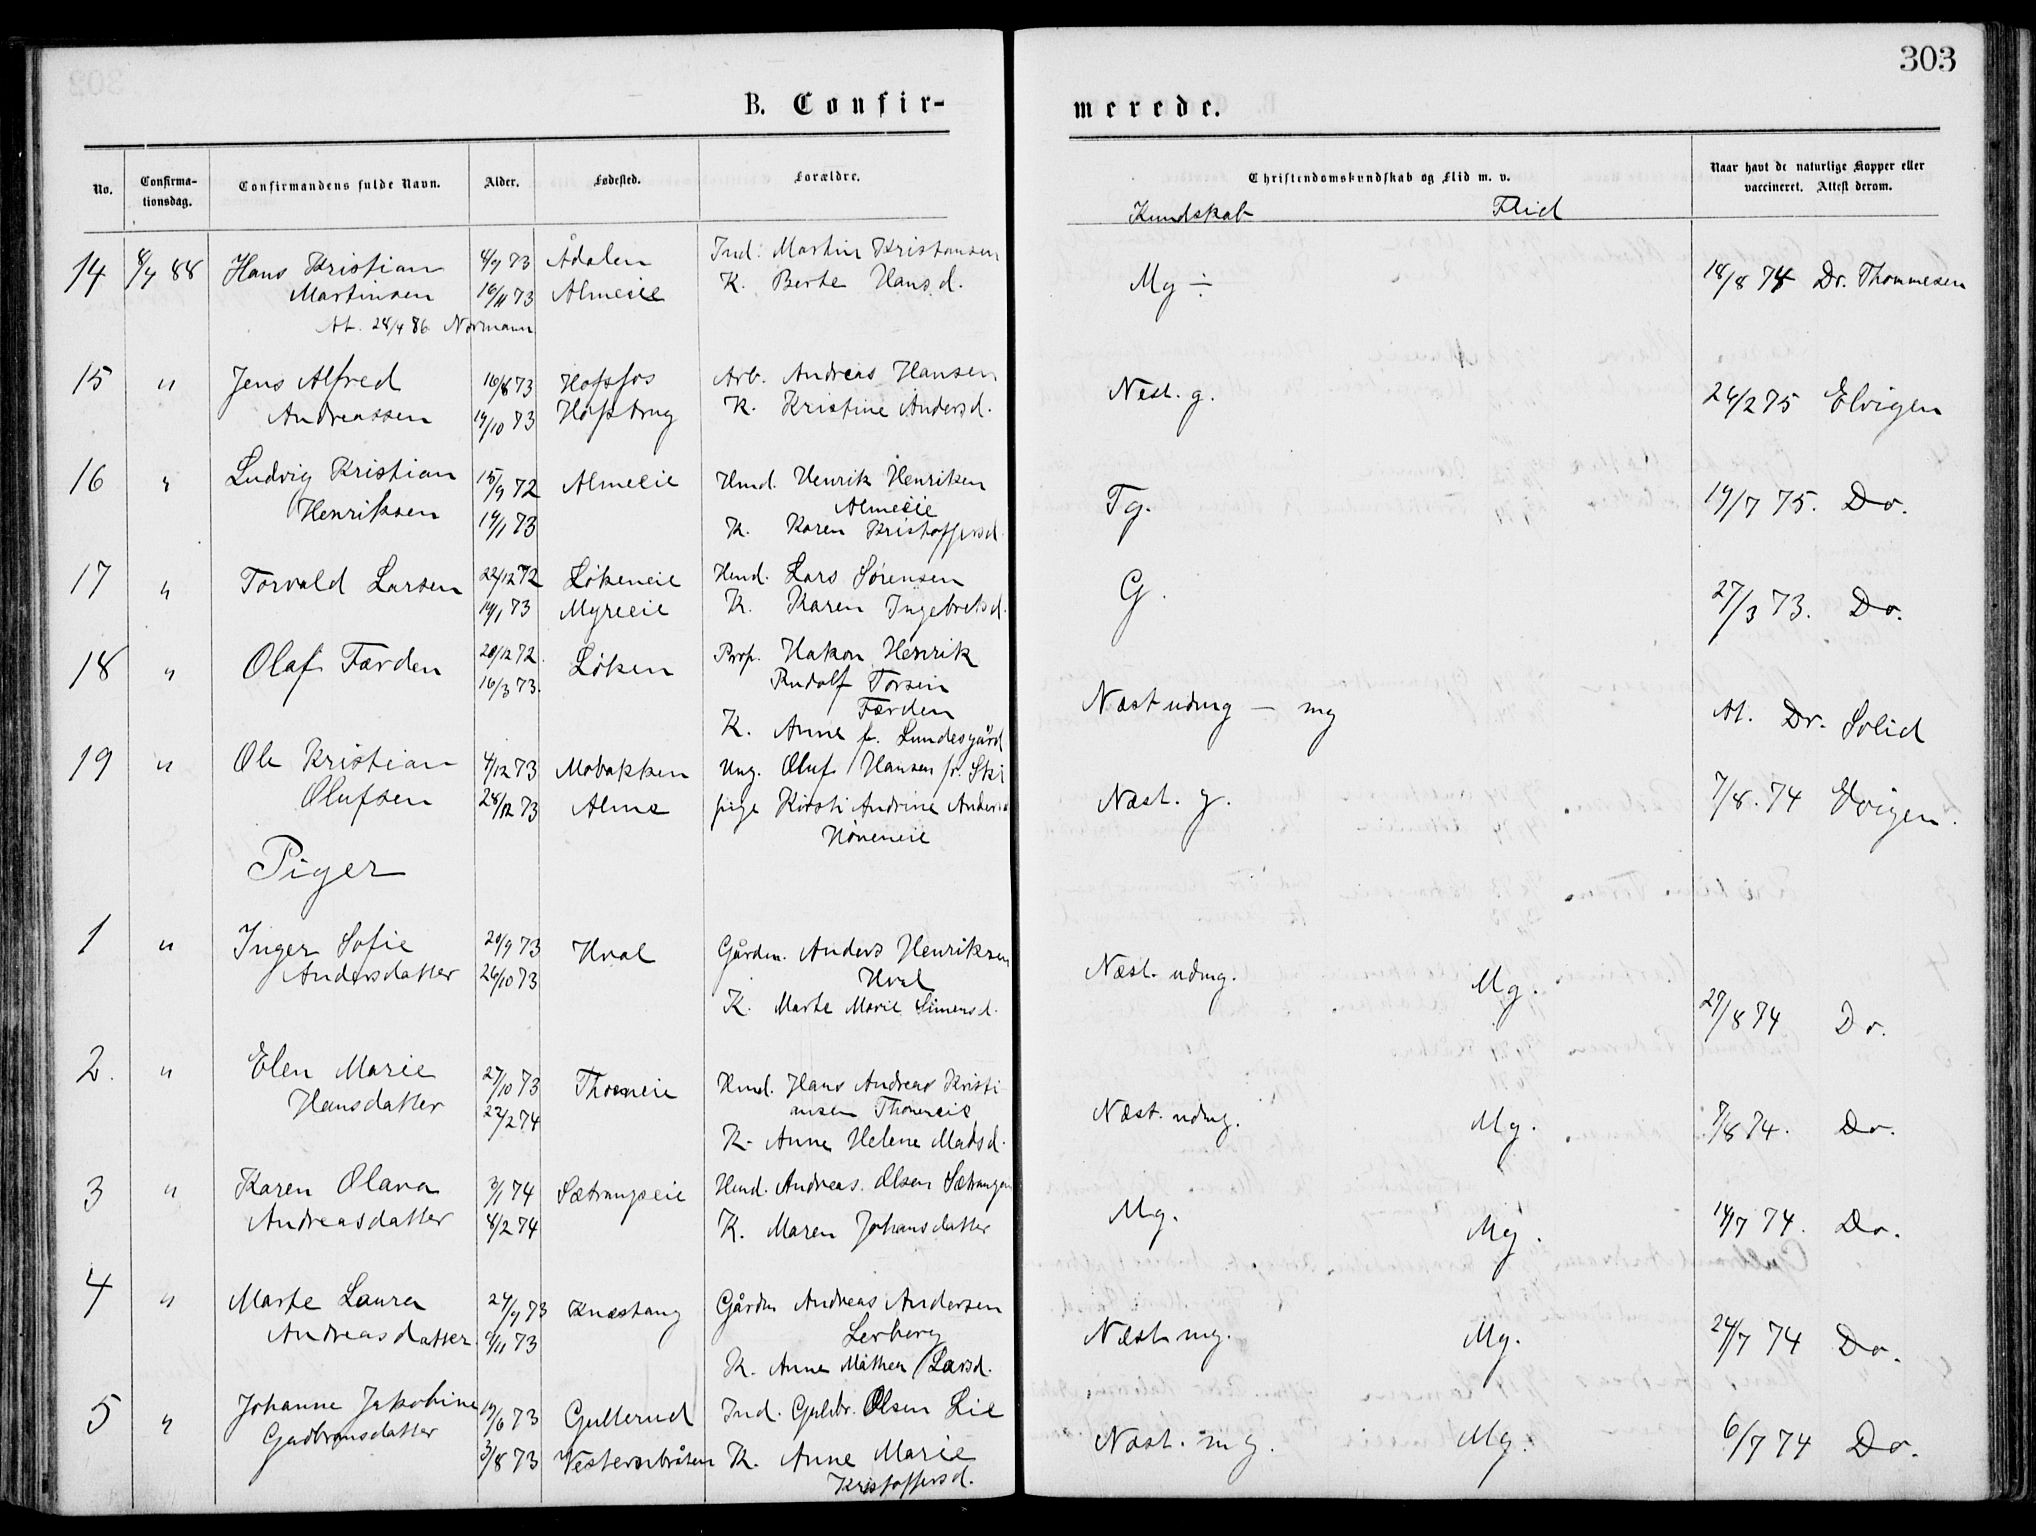 303
B. Confir-
merede.
No.
Confirma-
tionsdag.
Confirmandens fulde Navn.
Alder.
Fødested.
Forældre.
Christendomskundskab og Flid m. v.
Naar havt de naturlige Kopper eller
vaccineret. Attest derom.
Kundskab
Flid
14 8/7 88 Hans Kristian 8/9 73 Ådalen Ind. Martin Kristansen
Martinsen 16/11 73 Almeie K. Berte Hansd.
At. 28/4 86. Normann
Mg ÷ 18/8 74 Dr. Thommesen
15 " Jens Alfred 16/8 73 Hofsfos Arb. Andreas Hansen
Andreassen 19/10 73 Hofsbrug K. Kristine Andersd.
Nest. g. 26/2 75 Elvigen
16 " Ludvig Kristian 15/9 72 Almeeie Hmd. Henrik Henriksen
Almeeie
Henriksen 19/1 73 K. Karen Kristoffersd.
Tg. 19/7 75. Do.
17 " Torvald Larsen 22/12 72 Løkeneie Hmd. Lars Sørensen
19/1 73 Myreeie K. Karen Ingebretsd.
G. 27/3 73. Do.
18 " Olaf Færden 20/12 72. Løken Prop. Hakon Henrik
16/3 73. Rudolf Torsein
Færden
K. Anne f. Lundesgård
Næst udmg — mg At. Dr. Solid
19 " Ole Kristian 4/12 73 Mobakken Ung. Oluf Hansen fr. Ski
Olufsen 28/12 73 Alme pige Kirsti Andrine Andersd
Høneneie
Næst. g. 7/8. 74 Elvigen.
Piger
1 " Inger Sofie 20/9 73 Hval Gårdm. Anders Henriksen
Andersdatter 26/10 73 Hval
K. Marte Marie Simensd.
Næst. udmg. Mg. 27/8 74 Do.
2. " Elen Marie 27/10 73 Thoeneie Hmd. Hans Andreas Kristi
Hansdatter 22/2 74 ansen Thoneneie
K. Anne Helene Madsd.
Næst. udmg. Mg. 7/8 74. Do.
3 " Karen Olava 3/1 74 Sætrangseie Hmd. Andreas Olsen Sætrangen
Andreasdatter 8/2 74 K. Maren Johansdatter
Mg. Mg. 14/7 74. Do.
4 " Marte Laura 24/9 73 Knæstang Gårdm Andreas Andersen
Andreasdatter 9/11 73 Lerberg
K. Anne Mathea Larsd.
Næst mg. Mg. 24/7 74 Do.
5 " Johanne Jakobine 19/6 73 Gullerud Ind. Guldbr. Olsen Lie
Gudbransdatter 3/8 73 Vesternbråten K. Anne Marie
Kristoffersd.
Næst. mg. Mg. 6/7 74 Do.